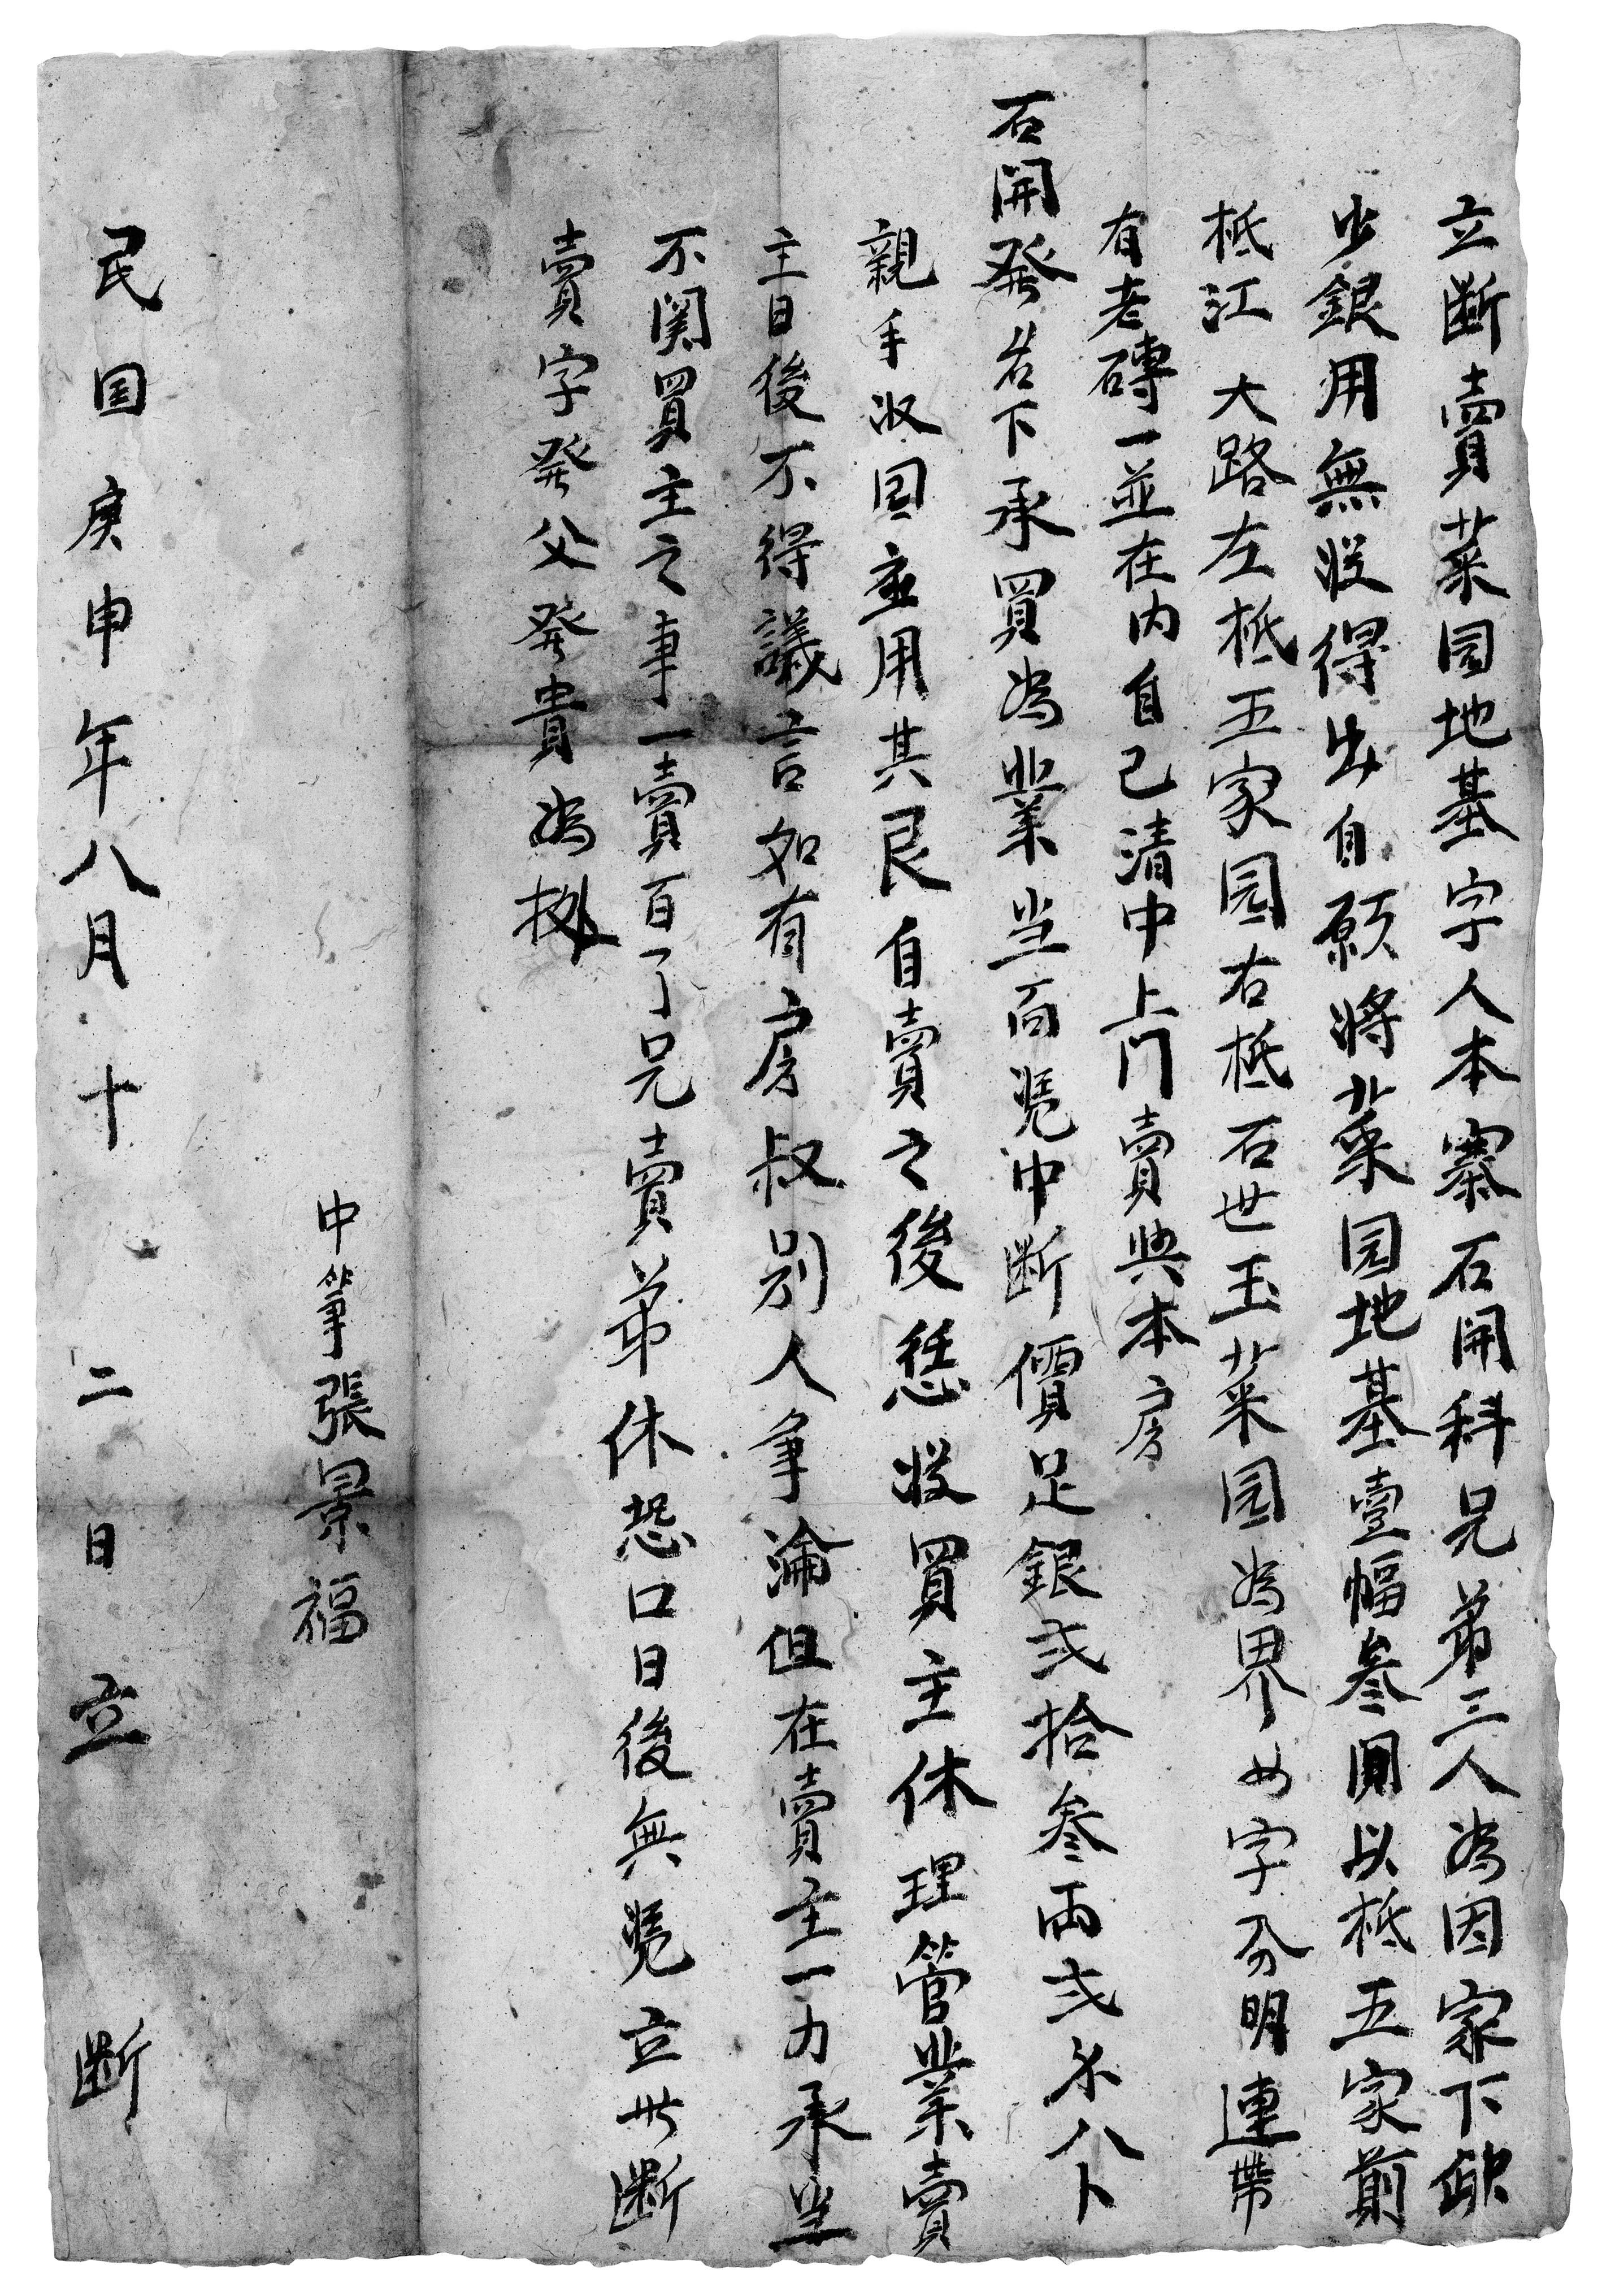 立断賣菜园地基字人本寨石開科兄弟三人為因家下缺
少銀用無從得出自願將菜园地基壹幅叁間以柢五家前
柢江大路左柢五家园右柢石世玉菜园為界四字分明連帶
有老磚一並在内自己清中上门賣與本房
石開發名下承買為業当面凭中断價足銀弍拾叁両弍分八卜
親手收回應用其艮自賣之後恁從買主休理管業賣
主日後不得議言如有房叔别人争淪但在賣主一力承当
不関買主之事一賣百了兄賣弟休恐口日後無凭立此断
賣字発父発貴為拠
中筆張景福
民国庚申年八月十二日立断